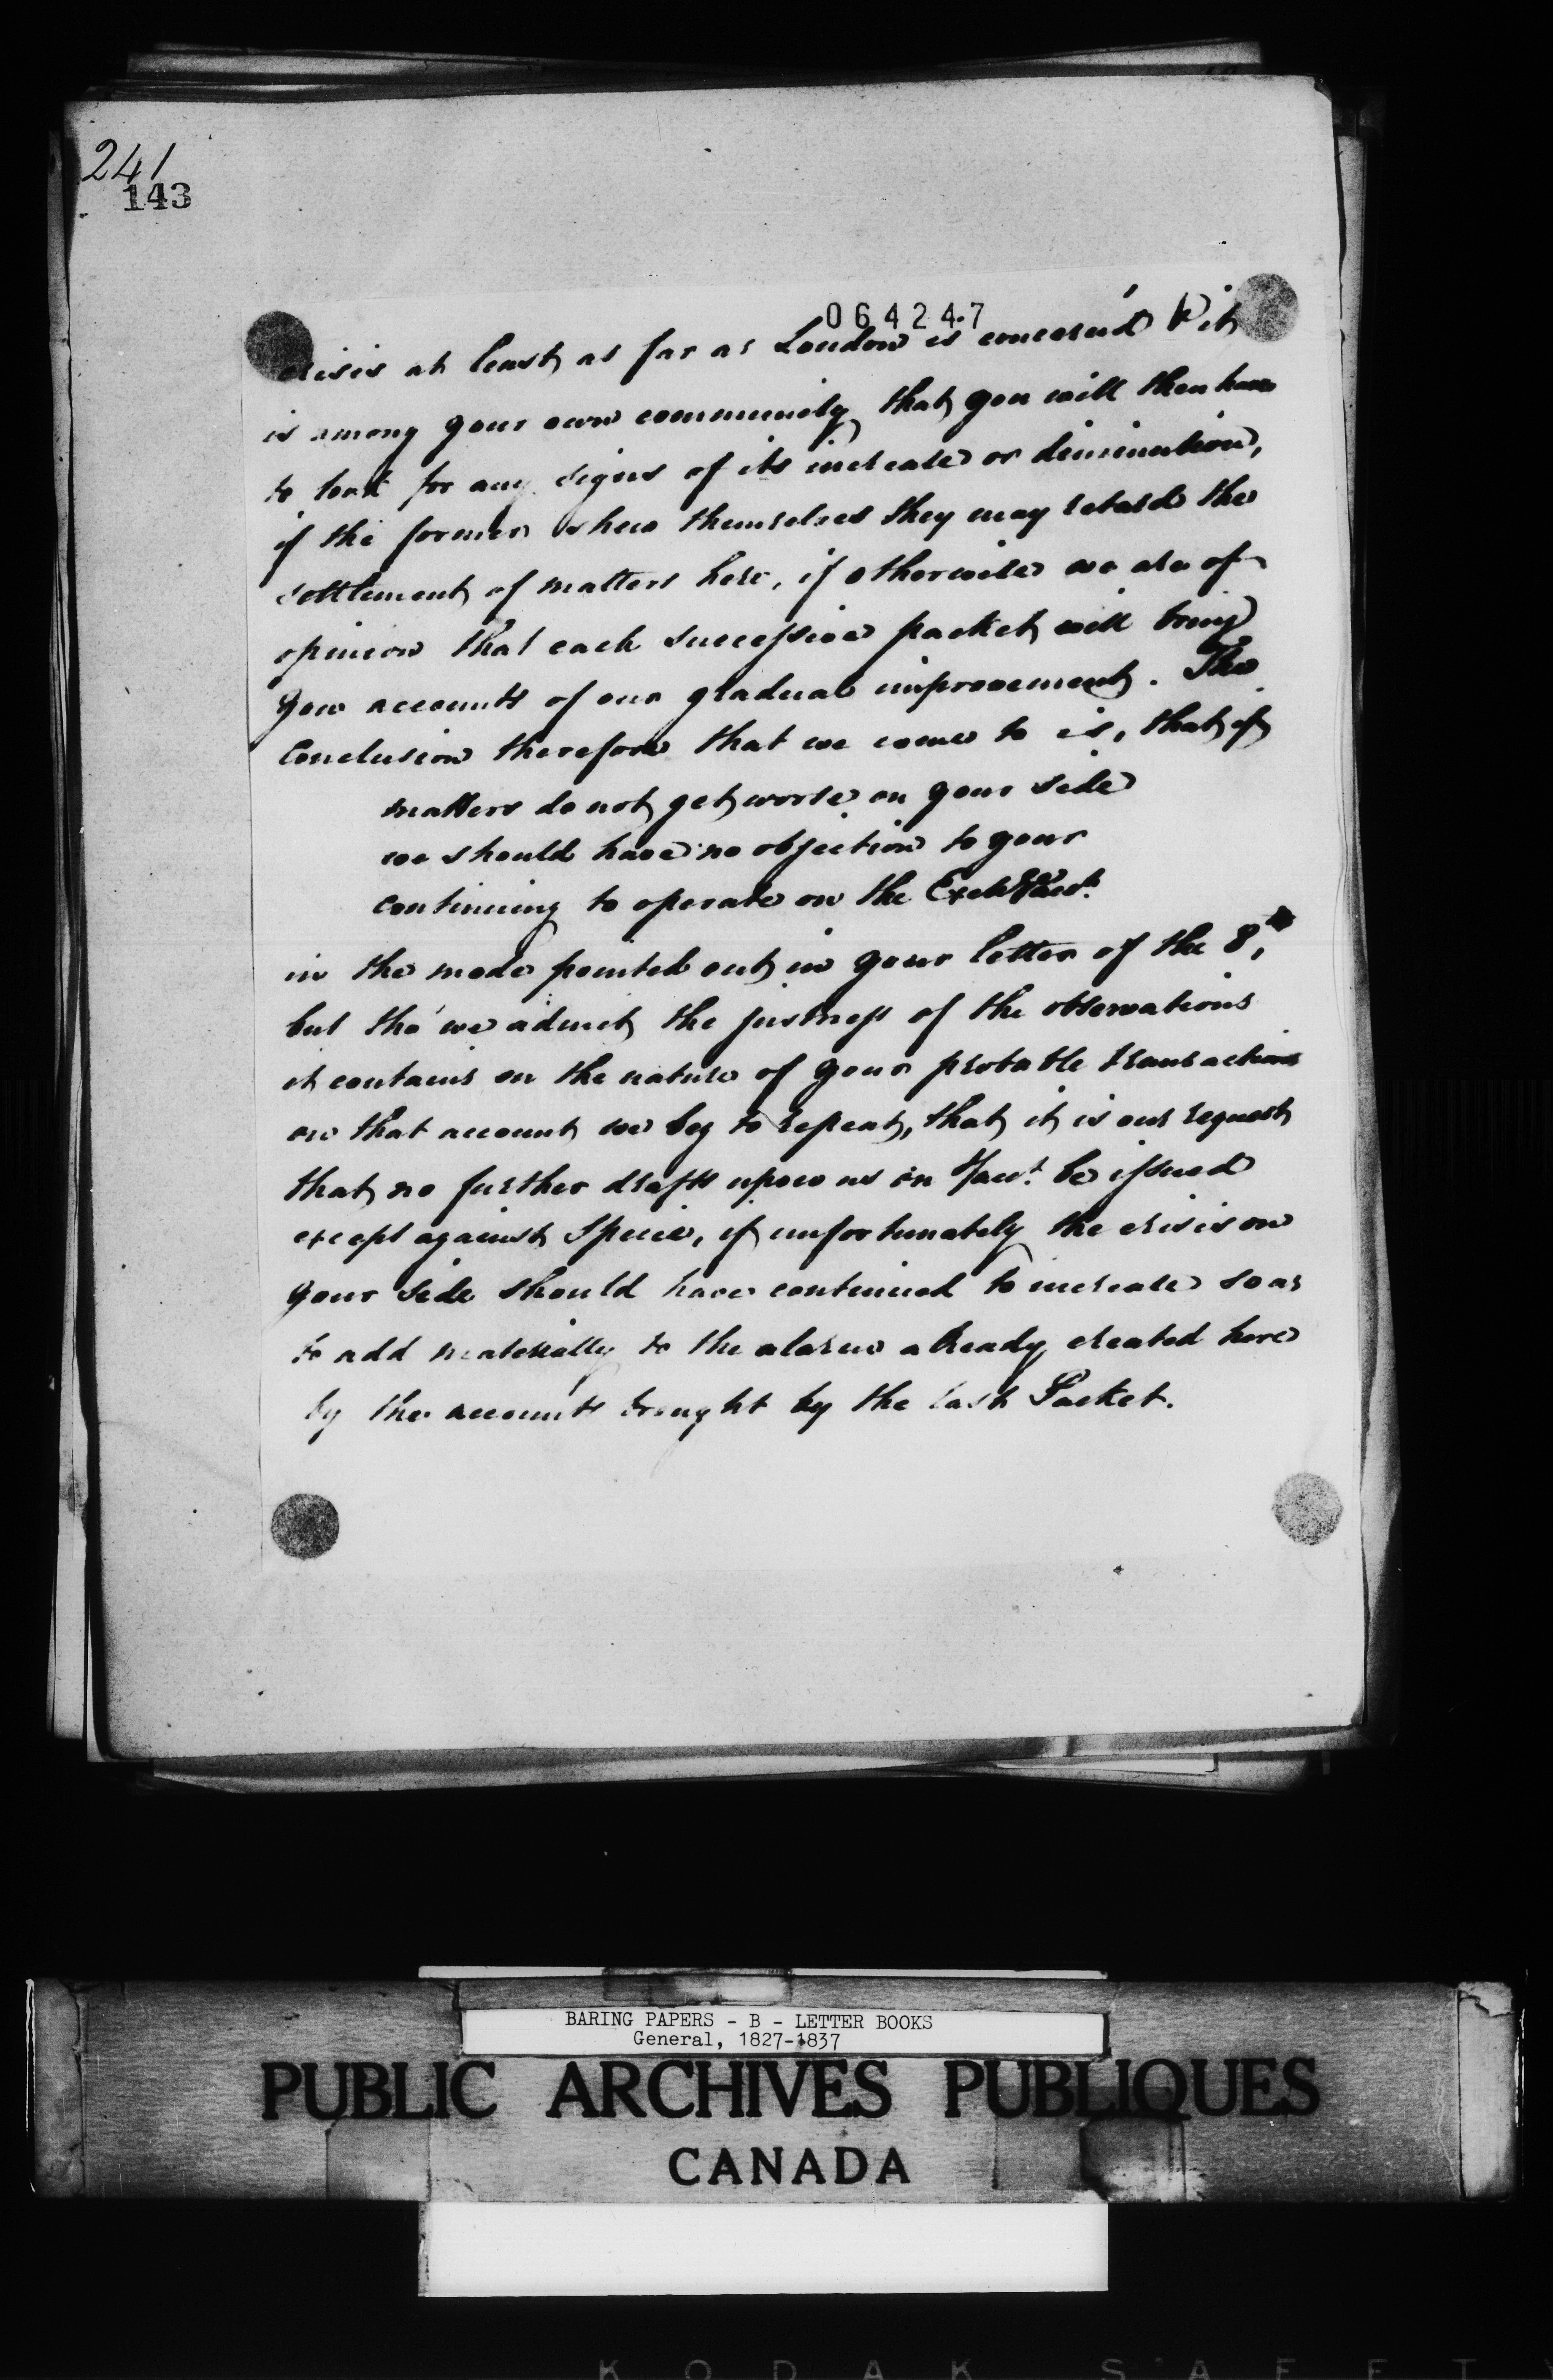 241
143
064247
crisis at least as far as London is concern'd & it
is among your own community that you will then have
to look for any signs of its increase or diminution,
if the former shew themselves they may retard the
settlement of matters here, if otherwise we are of
opinion that each successive packet will bring
you accounts of our gradual improvement. The
Conclusion therefore that we come to is, that if
matters do not get worse on your side
we should have no objection to your
continuing to operate on the Exch
in the mode pointed out in your letter of the 8th,
but tho' we admit the justness of the observations
it contains on the nature of your probable transactions
on that account we beg to repeat, that it is our request
that no further drafts upon us on be issued
except against Specie, if unfortunately the crisis on
your side should have continued to increase so as
to add materially to the alarm already created here
by the accounts brought by the last Packet.
BARING PAPERS - B - LETTER BOOKS
General, 1827-1837
PUBLIC ARCHIVES PUBLIQUES
CANADA
KODAK SAFETY